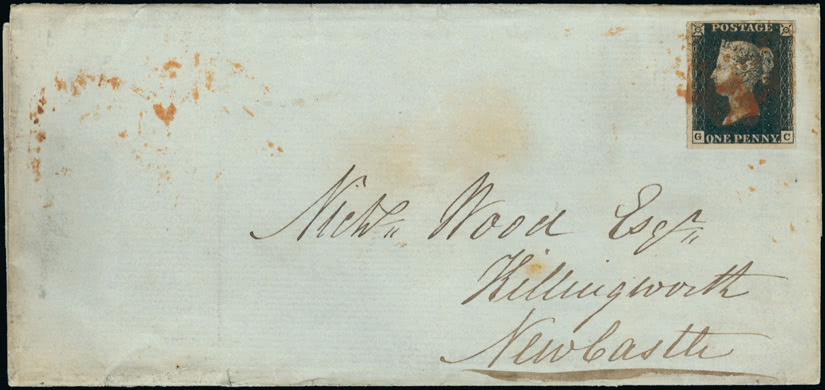 POSTAGE
G C
ONE PENNY.
Nichs Wood Esqr
Killingworth
NewCastle